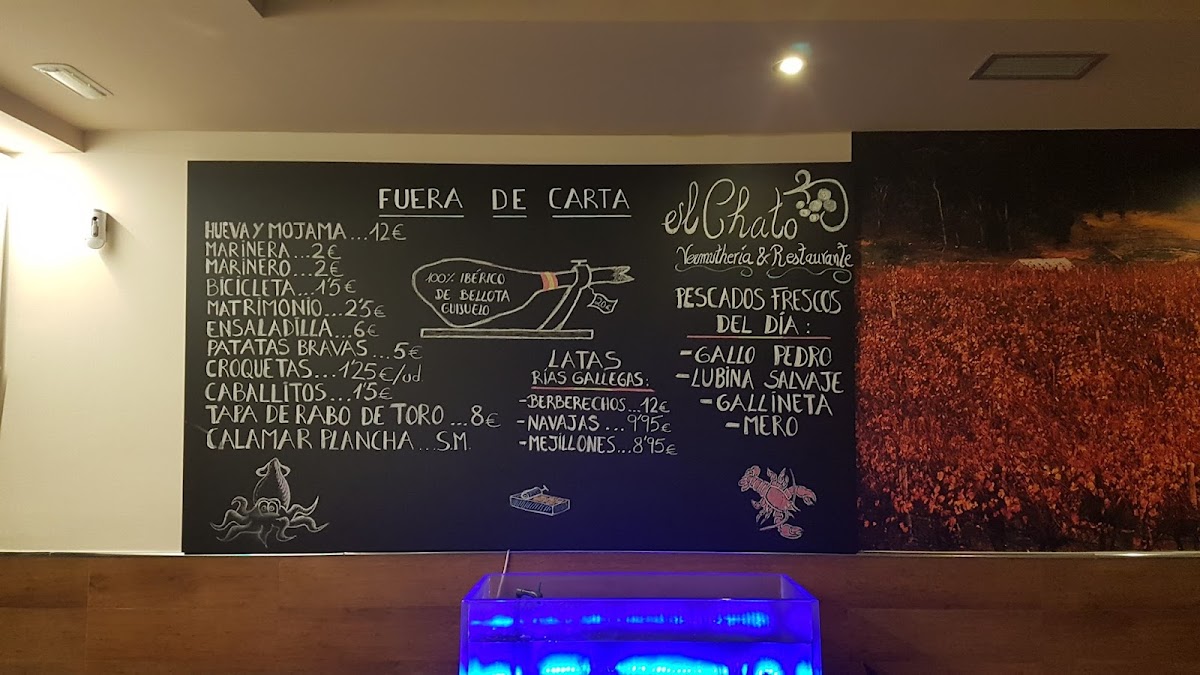 FUERA DE CARTA
HUEVA Y MOJAMA...12€
MARINERA...2€
MARINERO...2€
BICICLETA...1'5€
MATRIMONIO...2'5€
ENSALADILLA...6€
PATATAS BRAVAS...5€
CROQUETAS...1'25€/ud.
CABALLITOS...1'5€
TAPA DE RABO DE TORO...8€
CALAMAR PLANCHA...S.M.
100% IBÉRICO
DE BELLOTA
GUIJUELO
20€
LATAS
RÍAS GALLEGAS:
-BERBERECHOS...12€
-NAVAJAS...9'95€
-MEJILLONES...8'95€
el Chato
Vermuthería & Restaurante
PESCADOS FRESCOS
DEL DÍA:
-GALLO PEDRO
-LUBINA SALVAJE
-GALLINETA
-MERO